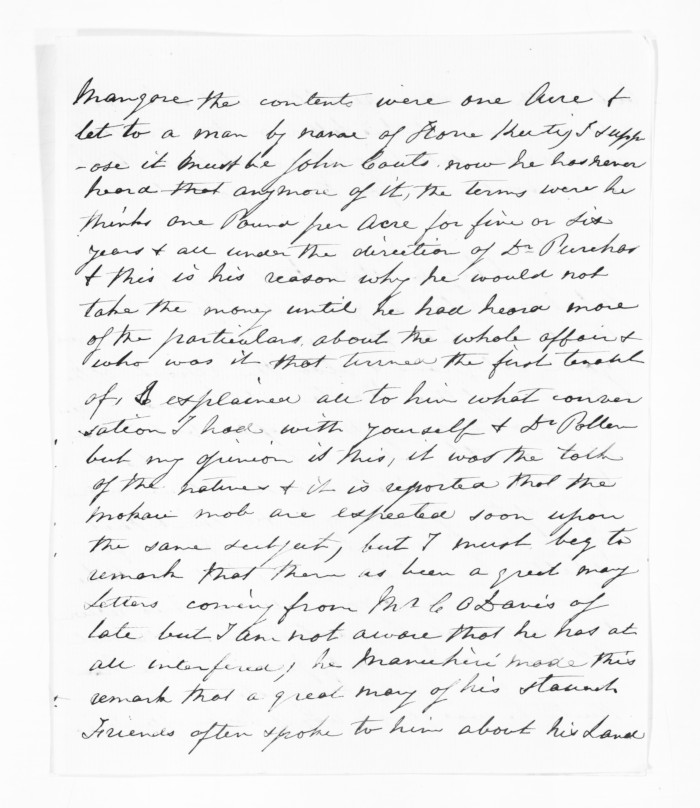 Mangore the contents were one Acre &
let to a man by name of Hone Kutis I supp
-ose it must be John Couts. now he has never
heard that anymore of it, the terms were he
thinks one Pound per Acre for five or six
years & all under the direction of Dr Purchas
& this is his reason why he would not
take the money until he had heard more
of the particulars about the whole affair &
who was it that turned the first tenant
of, I explained all to him what conver
sation I had with yourself & Dr Pollen
but my opinion is this, it was the talk
of the natives & it is reported that the
mokau mob are expected soon upon
the same subject, but I must beg to
remark that there as been a great many
Letters coming from Mr C O Davis of
late but I am not aware that he has at
all interfered, he Manuhiri made this
remark that a great many of his staunch
Friends often spoke to him about his Land